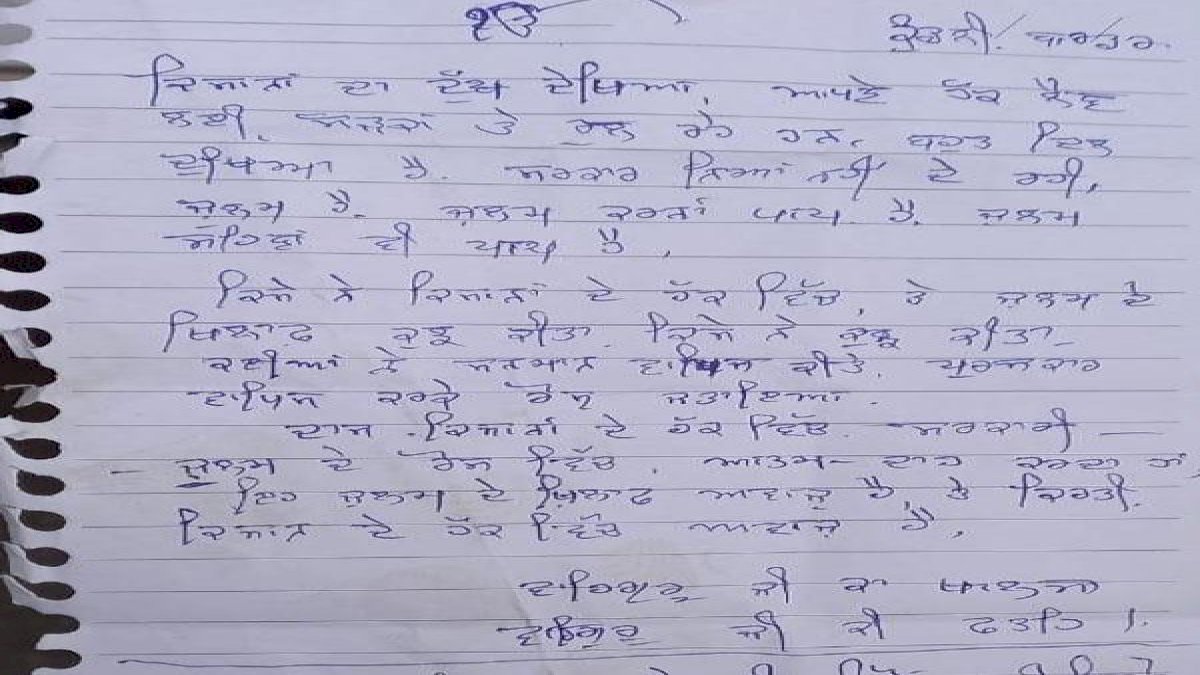 ੴ
ਕੁੰਡਲੀ / ਬਾਰਡਰ.
ਕਿਸਾਨਾਂ ਦਾ ਦੁੱਖ ਦੇਖਿਆ, ਆਪਣੇ ਹੱਕ ਲੈਣ
ਲਈ, ਸੜਕਾਂ ਤੇ ਰੁਲ ਰਹੇ ਹਨ, ਬਹੁਤ ਦਿਲ
ਦੁਖਿਆ ਹੈ. ਸਰਕਾਰ ਨਿਆਂ ਨਹੀਂ ਦੇ ਰਹੀ,
ਜ਼ੁਲਮ ਹੈ. ਜ਼ੁਲਮ ਕਰਨਾਂ ਪਾਪ ਹੈ. ਜ਼ੁਲਮ
ਸਹਿਣਾਂ ਵੀ ਪਾਪ ਹੈ,
ਕਿਸੇ ਨੇ ਕਿਸਾਨਾਂ ਦੇ ਹੱਕ ਵਿੱਚ, ਤੇ ਜ਼ੁਲਮ ਦੇ
ਖਿਲਾਫ ਕੁਝ ਕੀਤਾ. ਕਿਸੇ ਨੇ ਕੁਝ ਕੀਤਾ-
ਕਈਆਂ ਨੇ ਸਨਮਾਨ ਵਾਪਿਸ ਕੀਤੇ, ਪੁਰਸਕਾਰ
ਵਾਪਿਸ ਕਰਕੇ ਰੋਸ ਜਤਾਇਆ.
ਦਾਸ ਕਿਸਾਨਾਂ ਦੇ ਹੱਕ ਵਿੱਚ. ਸਰਕਾਰੀ —
- ਜ਼ੁਲਮ ਦੇ ਰੋਸ ਵਿੱਚ. ਆਤਮ-ਦਾਹ ਕਰਦਾ ਹਾਂ
ਇਹ ਜ਼ੁਲਮ ਦੇ ਖ਼ਿਲਾਫ ਅਵਾਜ਼ ਹੈ, ਤੇ ਕਿਰਤੀ
ਕਿਸਾਨ ਦੇ ਹੱਕ ਵਿੱਚ ਅਵਾਜ਼ ਹੈ,
ਵਾਹਿਗੁਰੂ ਜੀ ਕਾ ਖਾਲਸਾ
ਵਾਹਿਗੁਰੂ ਜੀ ਕੀ ਫਤਹਿ ।.